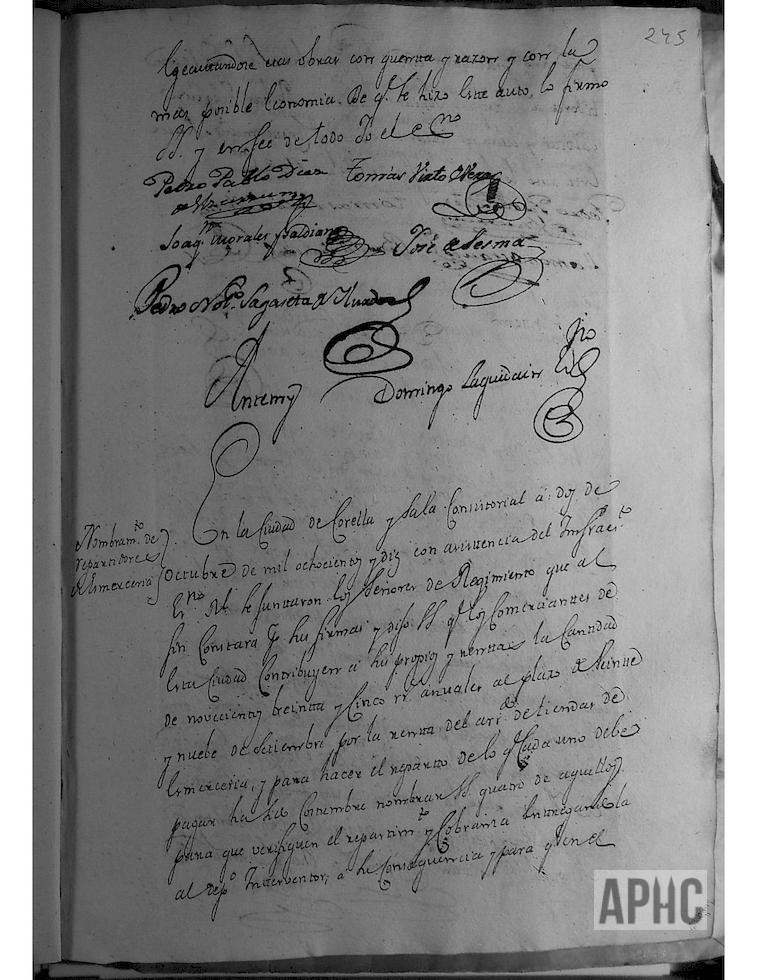 245
Egecutandose estas obras con quenta y razon y con la
mas posible economia. De q.e se hizo este auto, lo firmo
SS. y en fee de todo Yo el
Pedro Pablo Diez Tomás Virto
Joaq.n Morales y José de Sesma
Pedro Sagaseta de
Antemy Domingo Laquidain
En la Ciudad de Corella y Sala Consistorial a dos de
Nombram.to de
repartidores
de Esmerceria
Octubre de mil ochocientos y diez con asistencia del Infraes.to
Es.no R.l se juntaron los Señores de Regimiento que al
fin Constara p.r sus firmas y dijo SS. q.e los Comerciantes de
esta Ciudad Contribuyen a sus propios y rentas la Cantidad
de novecientos treinta y Cinco r.s anuales al plazo de Veinte
y nuebe de Setiembre por la renta del arr.do de tiendas de
Esmerceria, y para hacer el reparto de lo q.e Cada uno debe
pagar ha sido Costumbre nombrar SS. quatro de aquellos
para que verifiquen el repartim.to y Cobranza entregandola
al dep.o Interventor; a su Consequencia y para q.e en el
APHC